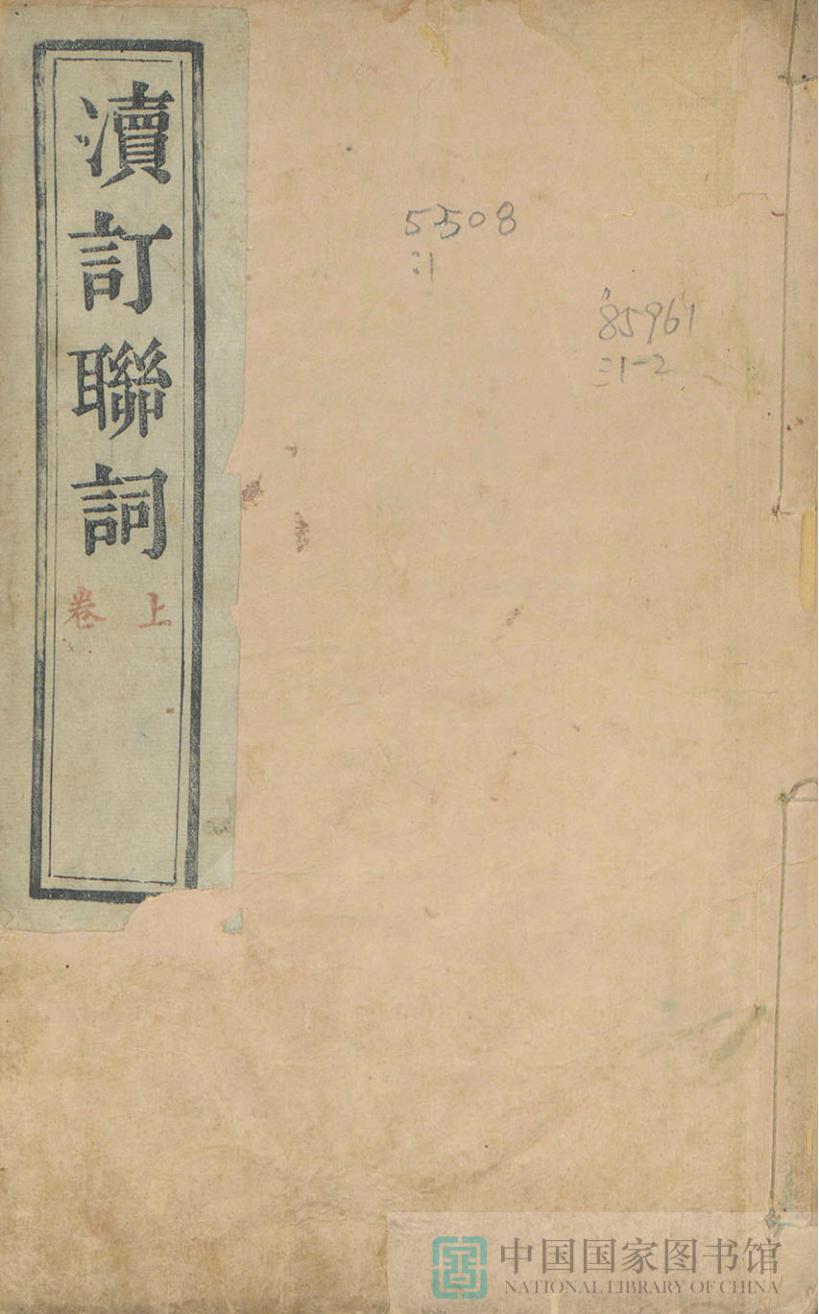 瀆訂聯詞
卷上
5508
:1
85961
:1-2
中国国家图书馆
NATIONAL LIBRARY OF CHINA